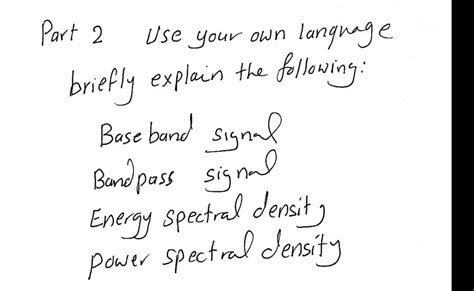 Part 2 Use your own language
briefly explain the following:
Base band signal
Bandpass signal
Energy spectral density
Power spectral density